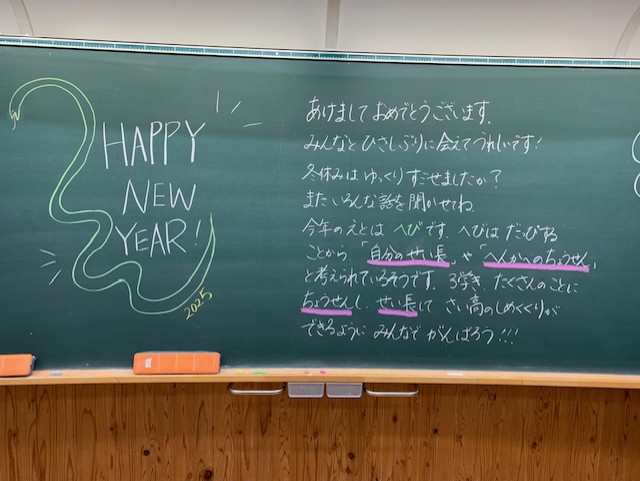 HAPPY
NEW
YEAR!
2025
あけましておめでとうございます。
みんなとひさしぶりに会えてうれしいです!
冬休みはゆっくりすごせましたか?
またいろんな話を聞かせてね。
今年のえとはへびです。へびはだっぴする
ことから、「自分のせい長」や「へんかへのちょうせん」
と考えられているそうです。3学き、たくさんのことに
ちょうせんし、せい長して、さい高のしめくくりが
できるようにみんなでがんばろう!!!